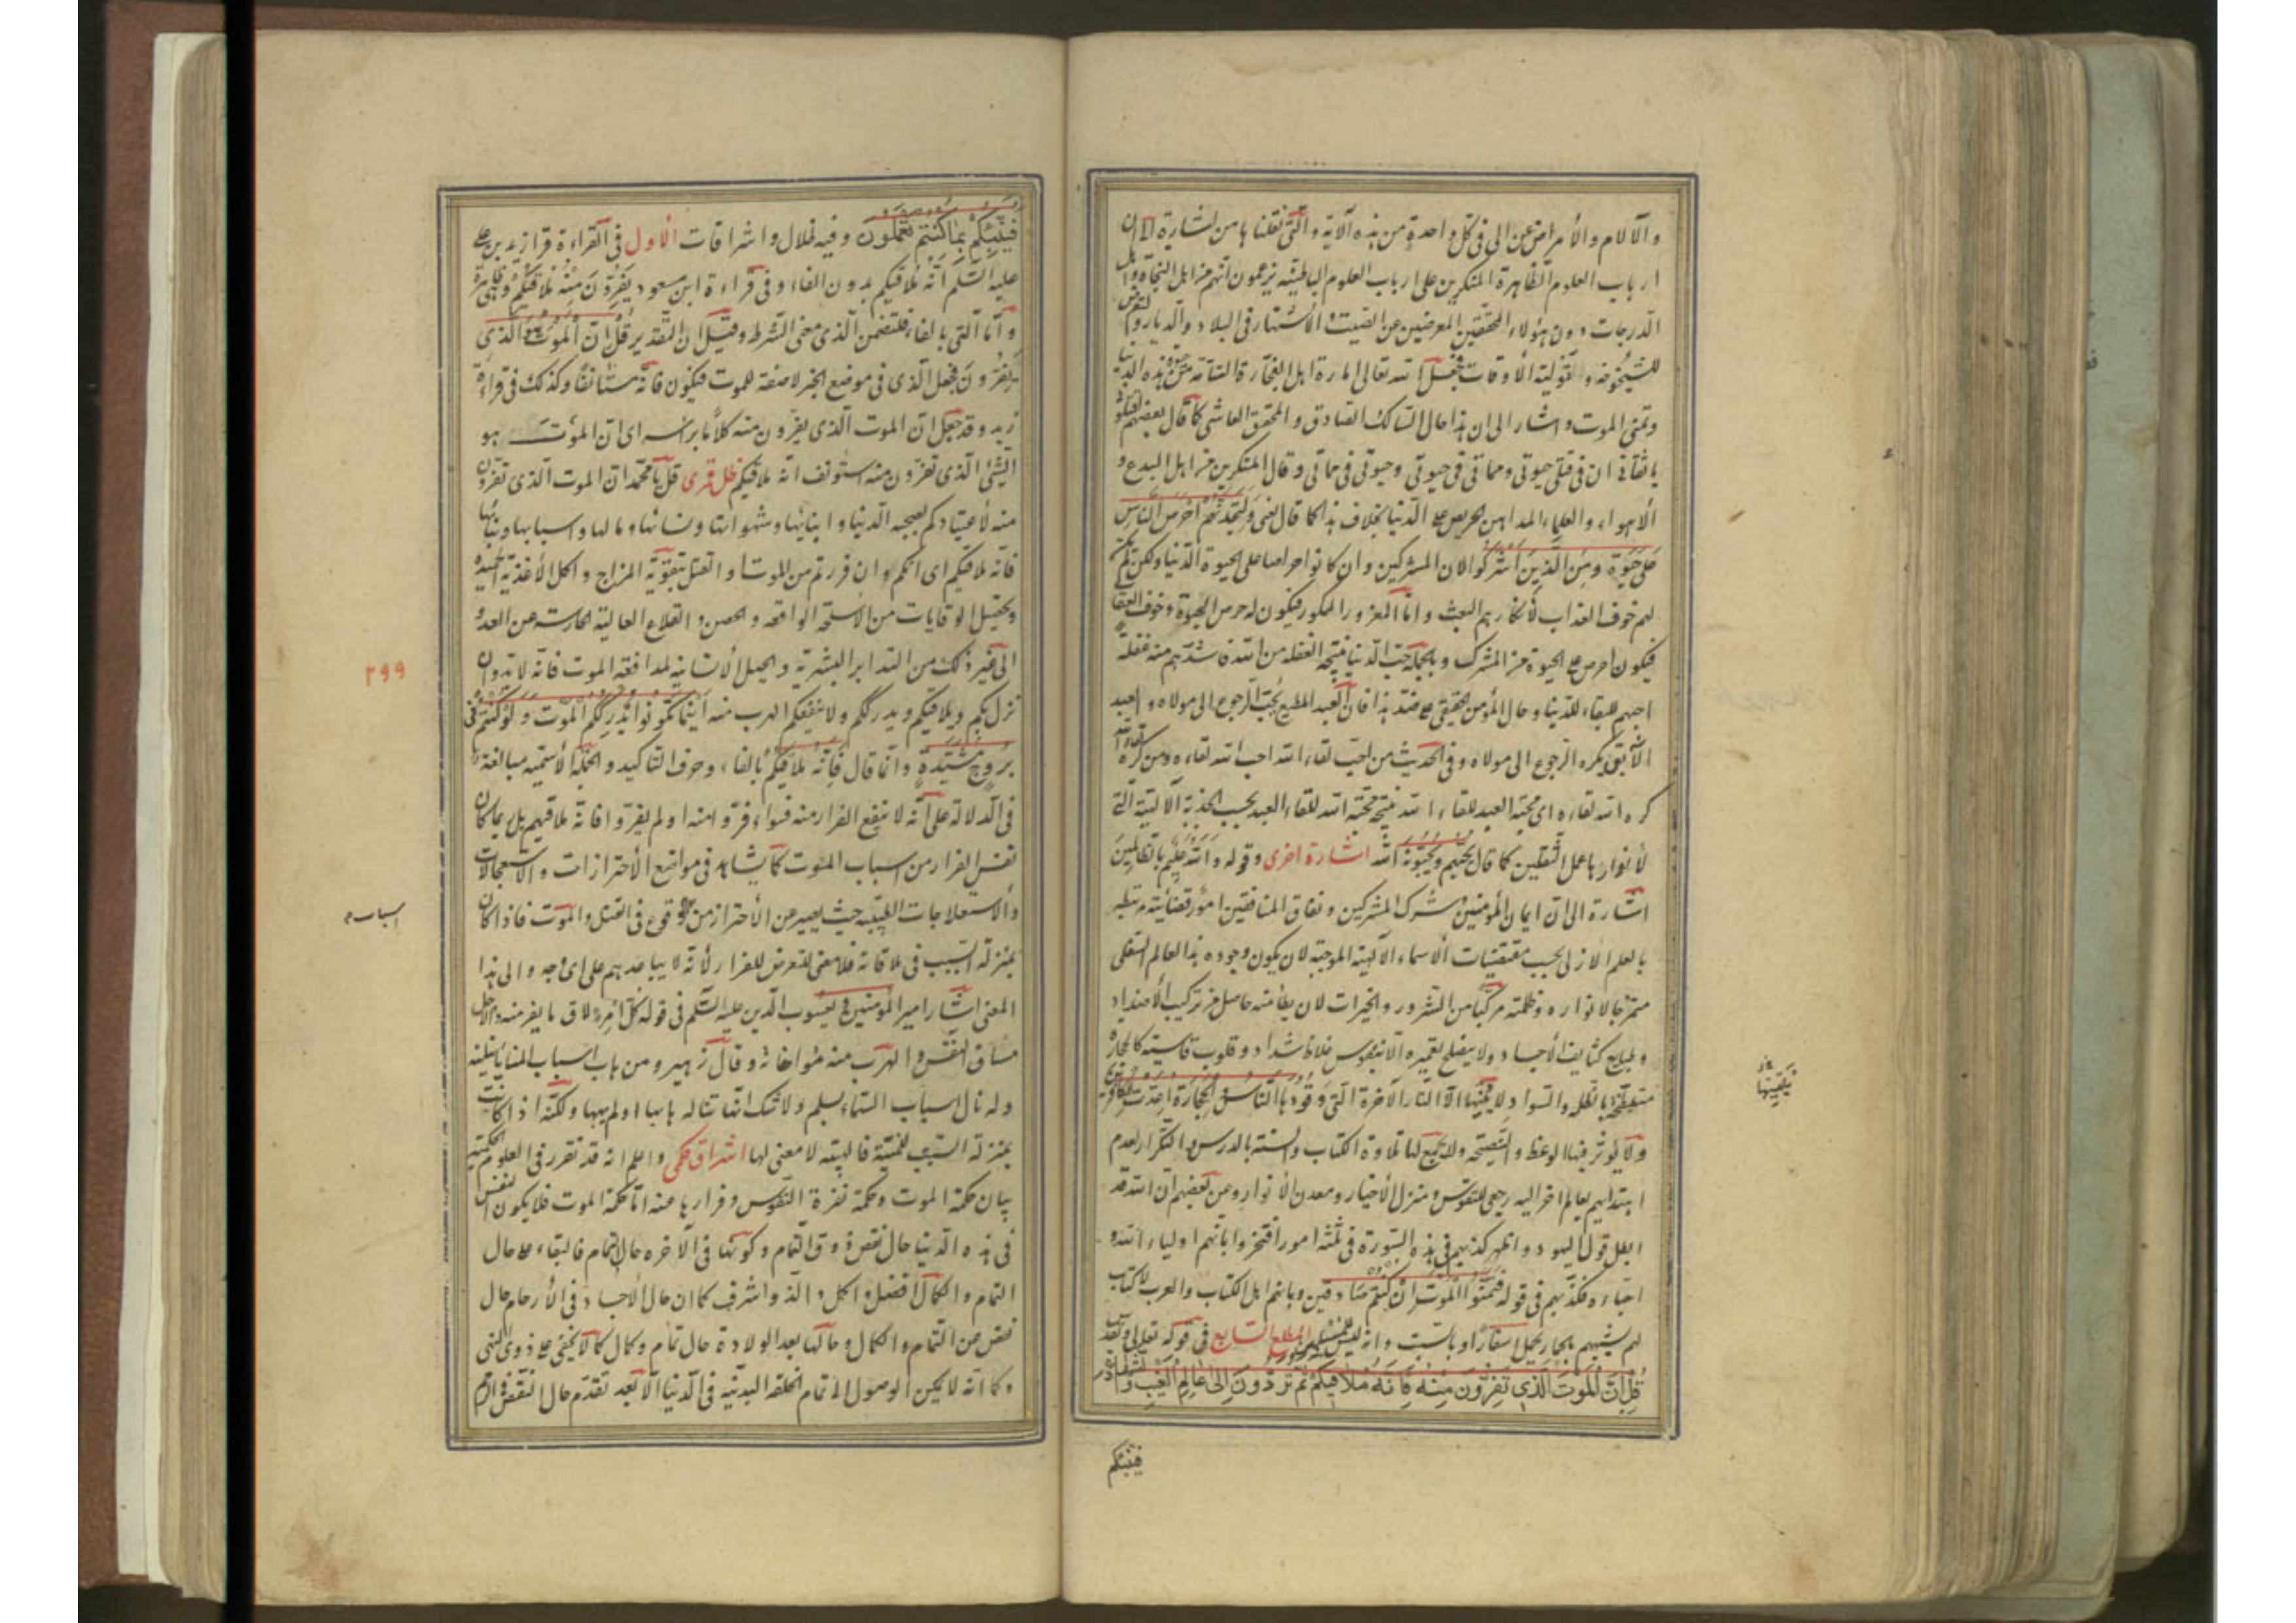 والآلام والأمراض عن الى فى كل واحدة من هذه الآية والتى نقلناها من اشارة الى ان
ارباب العلوم الظاهرة المنكرين على ارباب العلوم الباطنية يزعمون انهم من اهل النجاة واهل
الدرجات دون هؤلاء المحققين المعرضين عن الصيت والأشتهار فى البلاد والديار والتعرض
للشيخوخة و الأوقات فجعل الله تعالى امارة اهل هذه الدنيا
وتمنى الموت واشار الى ان هذا حال السالك الصادق والمحقق العاشق كما قال بعضهم اقتلونى
يا ثقاتى ان فى قتلى حيوتى ومماتى فى حيوتى وحيوتى فى مماتى وقال المنكرين من اهل البدع و
الأهواء والعلماء المداهن الحريص على الدنيا بخلاف هذا كما قال تعالى ولتجدنهم احرص الناس
على حيوة ومن الذين اشركوا لان المشركين وان كانوا حراصا على الحيوة الدنيا ولكن لم يكن
لهم خوف العذاب لأنكارهم البعث واما المغرور المكور فيكون له حرص الحيوة وخوف العقاب
فيكون احرص على الحيوة من المشرك وبالجملة حب الدنيا نتيجة الغفلة من الله فاشدهم منه غفلة
احبهم للبقاء للدنيا وحال المؤمن الحقيقى على ضد هذا فان العبد المطيع يحب الرجوع الى مولاه والعبد
الآبق يكره الرجوع الى مولاه وفى الحديث من احب لقاء الله احب الله لقاءه ومن كره لقاء الله
كره الله لقاءه اى محبة العبد للقاء الله نتيجة محبة الله للقاء العبد بحسب الجذبة الالهية التى
لا توازيها عمل الثقلين كما قال يحبهم ويحبونه الله اشارة اخرى وقوله والله عليم بالظالمين
اشارة الى ان ايمان المؤمنين وشرك المشركين ونفاق المنافقين امور قضائية مرتبطة
بالعلم الازلى بحسب مقتضيات الاسماء الالهية الموجبة لان يكون وجود هذا العالم السفلى
ممتزجا لانواره وظلمته مركبا من الشرور والخيرات لان نظامه حاصل من تركيب الأضداد
وطبايع كثايف الأجساد ولا ينصلح تعميره الا بنفوس غلاظ شداد وقلوب قاسية كالحجارة
بالظلمة والسواد لا الا النار الآخرة التى وقودها الناس والحجارة اعدت للكافرين
ولا يؤثر فيها الوعظ والنصيحة ولا ينجع لها تلاوة الكتاب والسنة بالدرس والتكرار لعدم
ابتدائهم بعالم اخر اليه رجعى النفوس ومنزل الأخيار ومعدن الأنوار وعن بعضهم ان الله قد
ابطل قول اليهود واظهر كذبهم فى هذه السورة فى ثلثة امور افتخروا بانهم اولياء الله و
احباءه فكذبهم فى قوله فتمنوا الموت ان كنتم صادقين وبانهم اهل الكتاب والعرب لا كتاب
لهم فشبههم بالحمار يحمل اسفارا وبالسبت وانه ليس للمسلمين المطلع السابع فى قوله تعالى
قل ان الموت الذى تفرون منه فانه ملاقيكم ثم تردون الى عالم الغيب والشهادة
فينبئكم
فينبئكم بما كنتم تعملون وفيه ظلال واشراقات الأول فى القراءة قرأ زيد بن على
عليه السلم انه ملاقيكم بدون الفاء وفى قراءة ابن مسعود تفرون منه ملاقيكم
واما التى بالفاء فلتضمن الذى معنى الشرط وقيل ان التقدير قل ان الموت هو الذى
تفرون فجعل الذى فى موضع الخبر لا صفة للموت فيكون فانه مستأنفا وكذلك فى قراءة
زيد وقد جعل ان الموت الذى تفرون منه كلاما برأسه اى ان الموت هو
الشئ الذى تفرون منه استونف انه ملاقيكم ظل فرشى قل يا محمد ان الموت الذى تفرون
منه لأعتيادكم بصحبة الدنيا وابنائها وشهواتها ونسائها ومالها واسبابها وبنائها
فانه ملاقيكم اى انكم وان فررتم من الموت او القتل بتقوية المزاج واكل الأغذية الجيدة
وتحصيل الوقايات من الاسلحة الواقعة والحصن والقلاع العالية الحارسة عن العدو
الى غير ذلك من التدابير البشرية والحيل الأنسانية لمدافعة الموت فانه لا بد وان
نزل بكم ويلاقيكم ويدرككم ولا ينفعكم الهرب منه اينما تكونوا يدرككم الموت ولو كنتم فى
بروج مشيدة وانما قال فانه ملاقيكم بالفاء وحرف التاكيد والجملة الأسمية مبالغة
فى الدلالة على انه لا ينفع الفرار منه فسواء فروا منه او لم يفروا فانه ملاقيهم بل ربما كان
نفس الفرار من اسباب الموت كما يشاهد فى مواضع الأحترازات والاستعجالات
والأستعلاجات الطبية حيث يصير عين الأحتراز من الوقوع فى القتل والموت فاذا كان
بمنزلة السبب فى ملاقاته فلا معنى للتعرض للفرار لأنه لا يباعدهم على اى وجه والى هذا
المعنى اشار امير المؤمنين ويعسوب الدين عليه السلم فى قوله كل امرء لاق ما يفر منه والأجل
مساق النفس والهرب منه موافاته وقال زهير ومن هاب اسباب المنايا ينلنه
ولو نال اسباب السماء بسلم ولا شك انها تناله هابها او لم يهبها ولكنه اذا كانت
بمنزلة السبب للمنية فالهيبة لا معنى لها اشراق حكمى واعلم انه قد تقرر فى العلوم الحكمية
بيان حكمة الموت وحكمة نفرة النفوس وفرارها عنه اما حكمة الموت فلا يكون النفس
فى هذه الدنيا حال نقص وفوق التمام وكونها فى الآخرة حال التمام فالبقاء على حال
التمام والكمال افضل واكمل والذ واشرف كما ان حال الأجساد فى الأرحام حال
نقص من التمام والكمال وحالها بعد الولادة حال تمام وكمال كما لا يخفى على ذوى النهى
وكما انه لا يمكن الوصول الى تمام الخلقة البدنية فى الدنيا الا بعد تقدم حال النقص فى الرحم
اسباب
٢٩٩